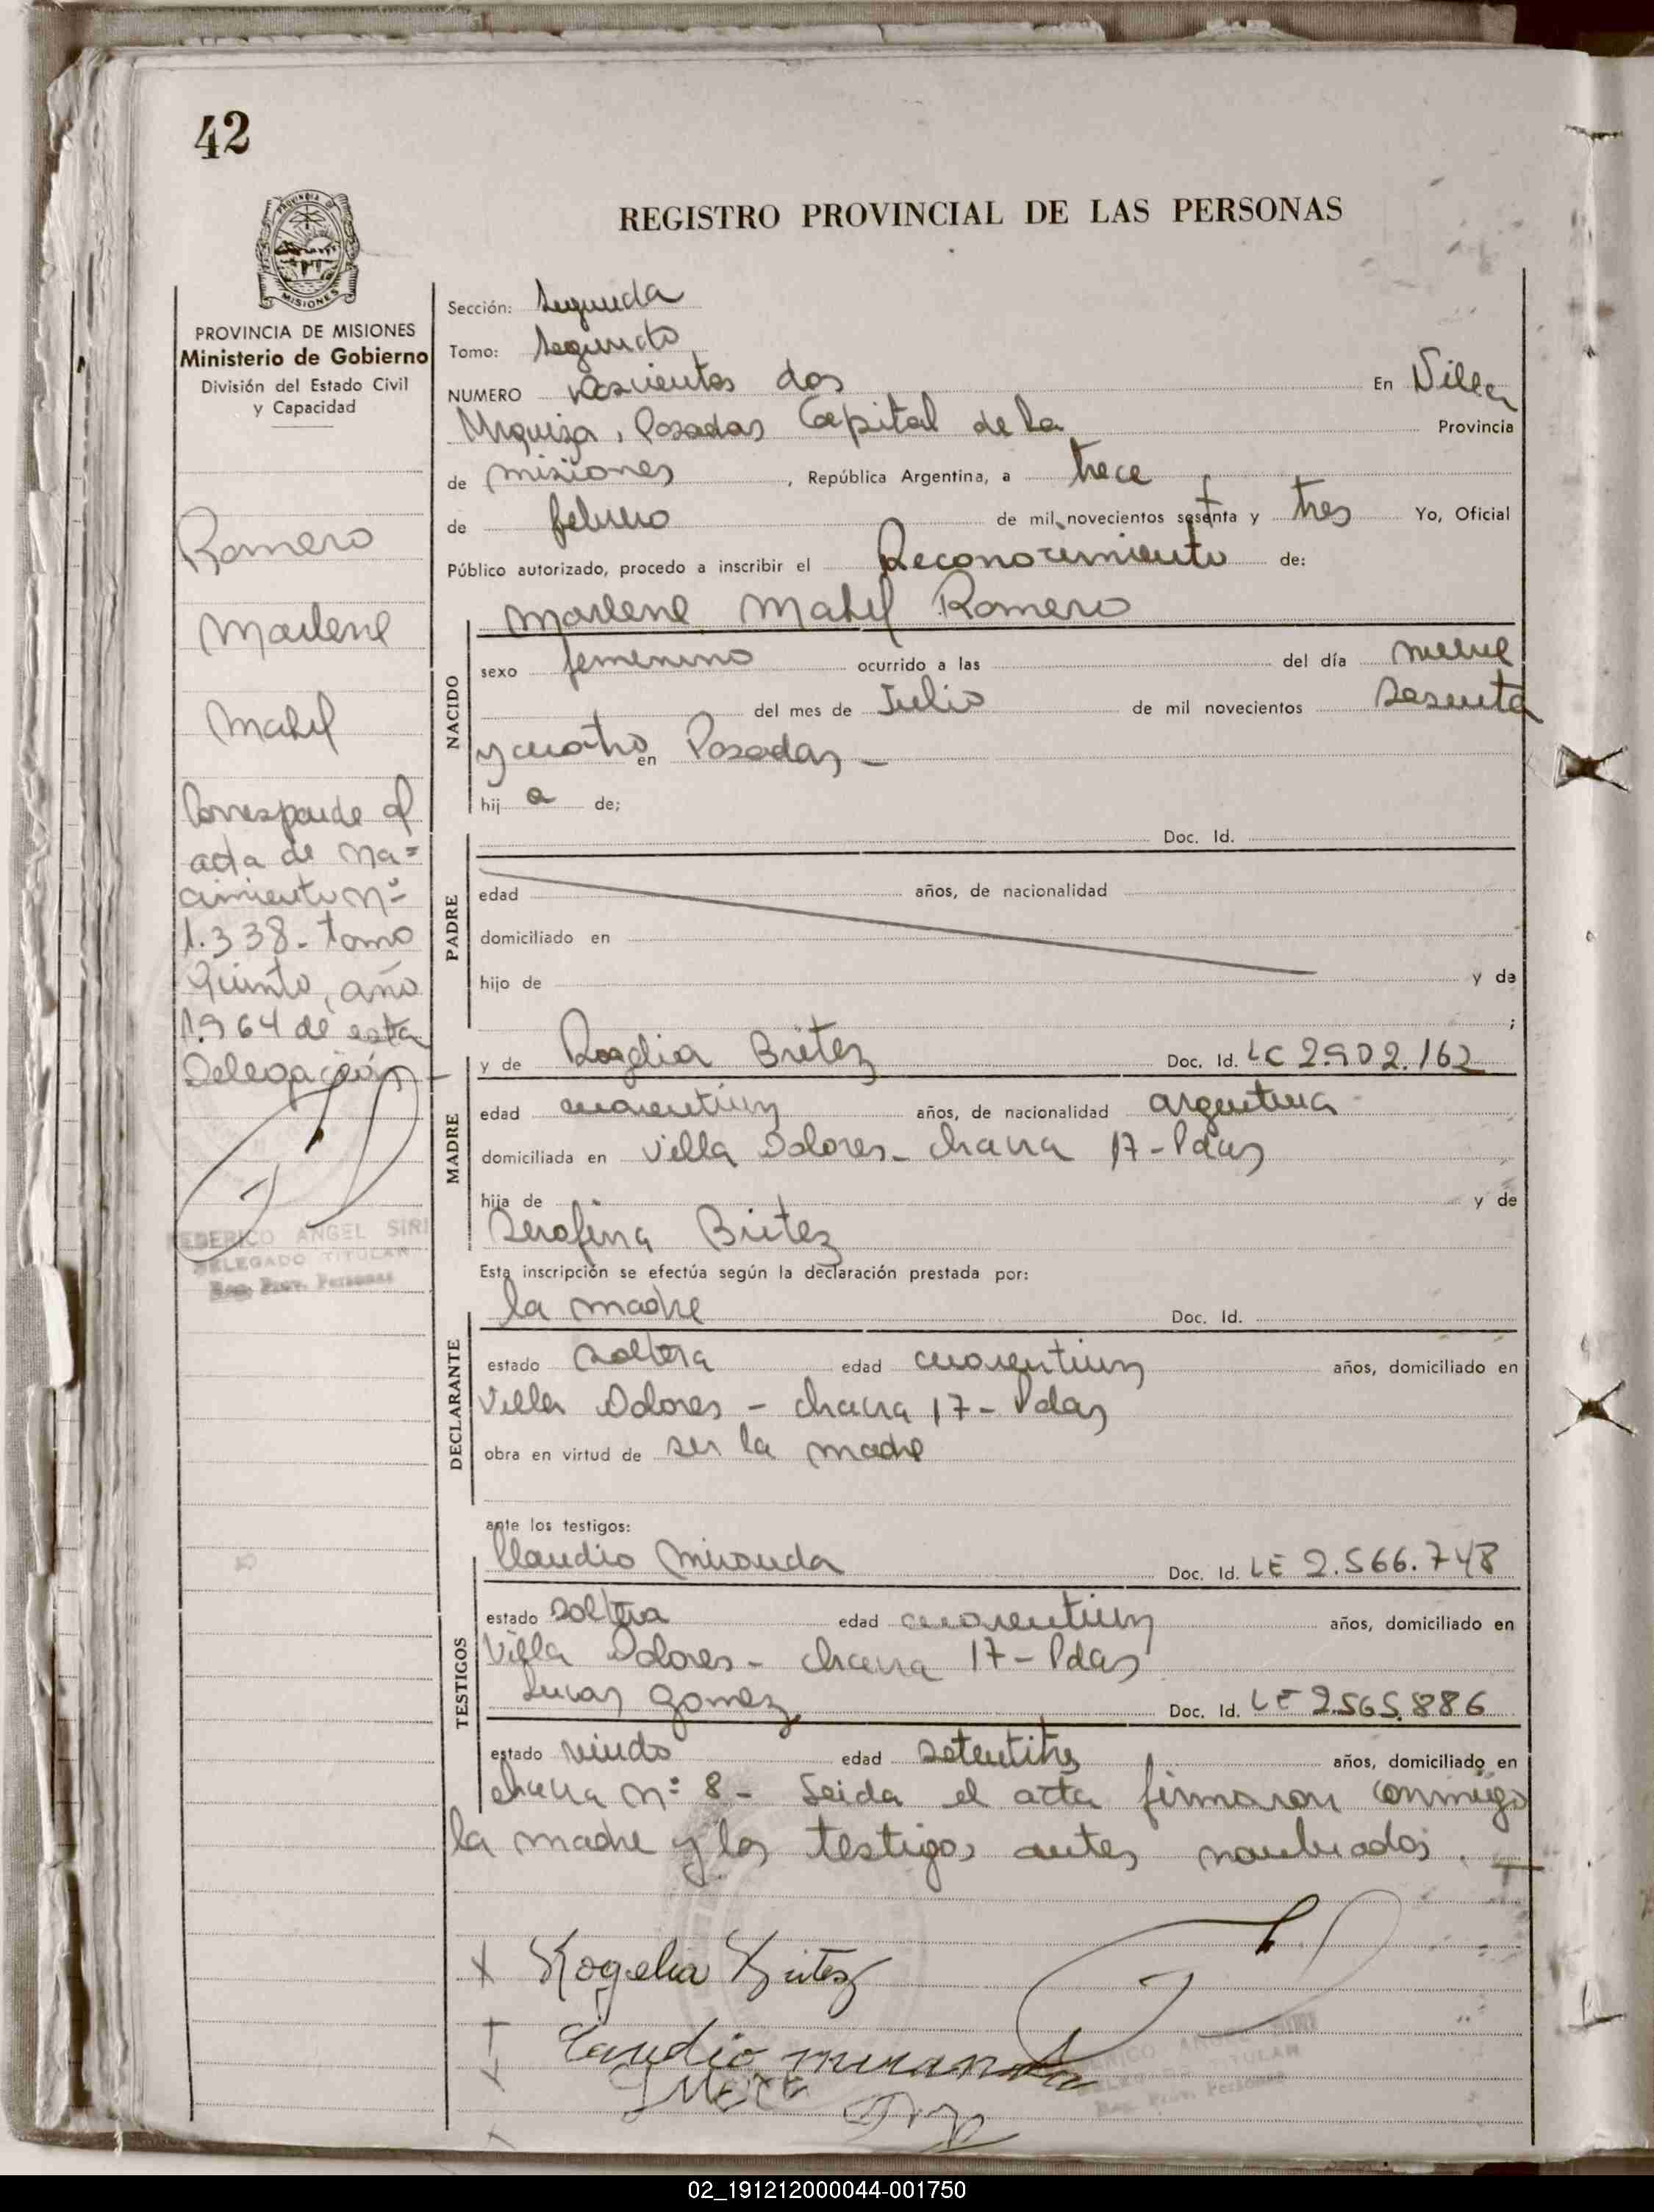 42
REGISTRO PROVINCIAL DE LAS PERSONAS
PROVINCIA
MISIONES
PROVINCIA DE MISIONES
Ministerio de Gobierno
División del Estado Civil
y Capacidad
Romero
Marlene
Mabel
Corresponde al
acta de na=
cimiento nº
1.338 - tomo
Quinto, año
1.964 de esta
Delegación
FEDERICO ANGEL SIRI
DELEGADO TITULAR
Reg. Prov. Personas
Sección: Segunda
Tomo: Segundo
NUMERO doscientos dos En Villa
Urquiza, Posadas Capital de la Provincia
de misiones, República Argentina, a trece
de febrero de mil novecientos setenta y tres Yo, Oficial
Público autorizado, procedo a inscribir el Reconocimiento de:
Marlene Mabel Romero
NACIDO
sexo femenino ocurrido a las del día nueve
del mes de Julio de mil novecientos sesenta
y cuatro en Posadas -
hij a de;
PADRE
Doc. Id.
edad años, de nacionalidad
domiciliado en
hijo de y de
;
MADRE
y de Rogelia Britez Doc. Id. LC 2.902.162
edad cuarentiun años, de nacionalidad argentina
domiciliada en Villa Dolores - chacra 17 - Pdas
hija de y de
Serafina Britez
Esta inscripción se efectúa según la declaración prestada por:
DECLARANTE
la madre Doc. Id.
estado soltera edad cuarentiun años, domiciliado en
Villa Dolores - chacra 17 - Pdas
obra en virtud de ser la madre
ante los testigos:
TESTIGOS
Claudio Miranda Doc. Id. LE 2.566.748
estado edad cuarentiun años, domiciliado en
Villa Dolores - chacra 17 - Pdas
Lucas Gomez Doc. Id. LE 2.565.886
estado viudo edad setentitres años, domiciliado en
chacra nº 8 - Leida el acta firmaron conmigo
la madre y los testigos antes nombrados. -
X Rogelia Britez
Claudio Miranda
02_191212000044-001750